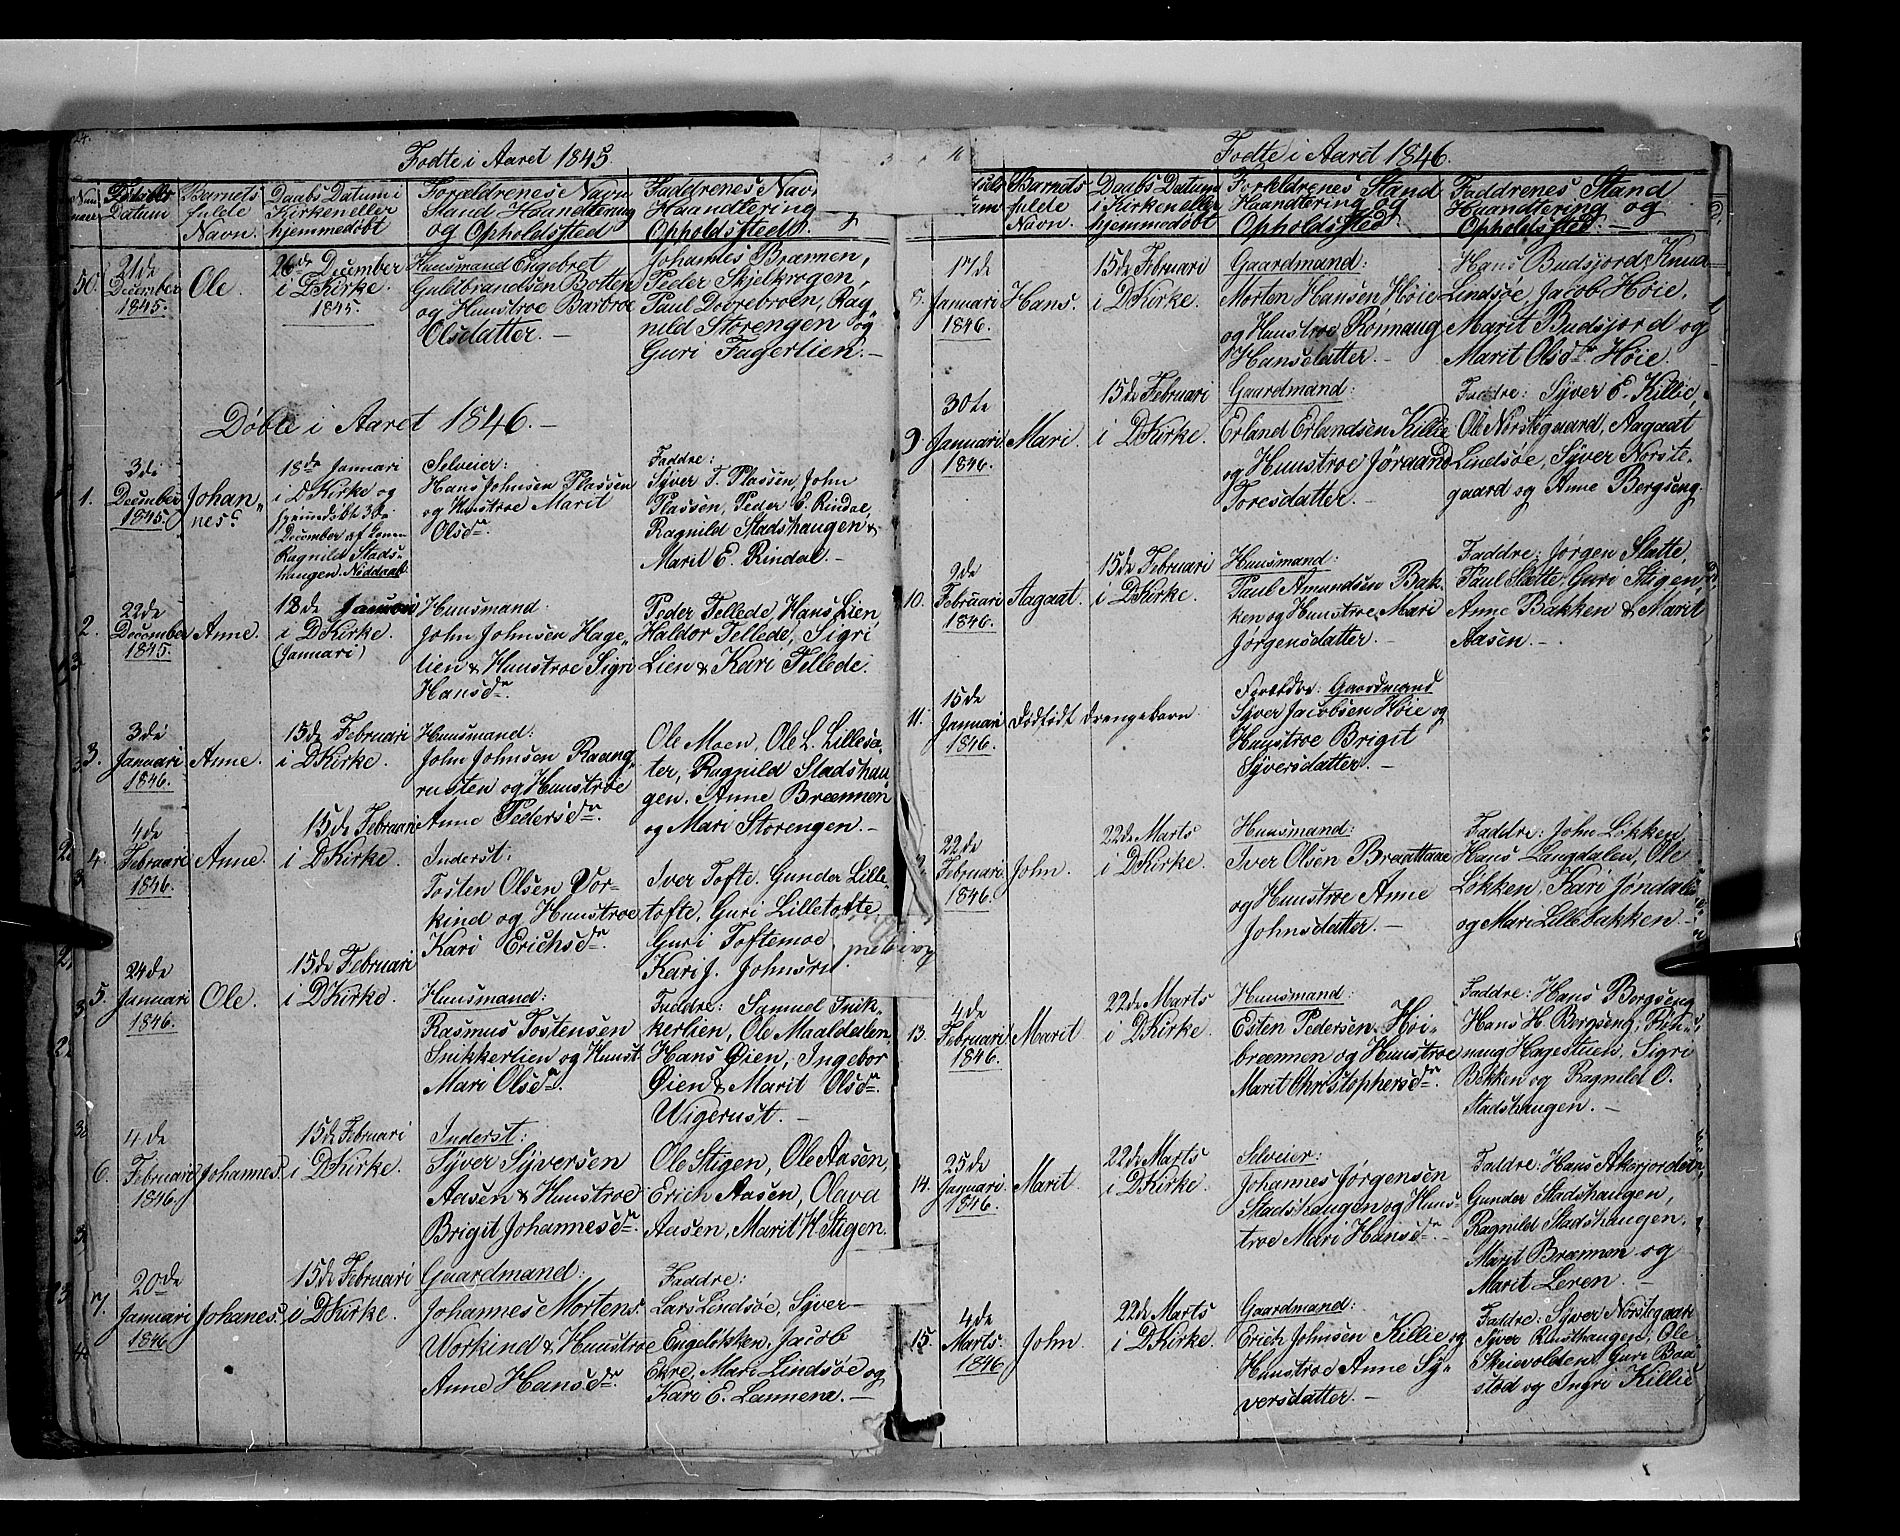 24.
Fødte i Aaret 1845.
Num mer
Fødsels Datum
Barnets fulde Navn.
Daabs Datum i Kirken eller hjemmedøbt
Forældrenes Navn Stand Haandtering og Opholdssted
Faddrenes Nav Haandtering Opholdssted
50.
21de December 1845.
Ole.
26de December i DKirke. 1845.
Huusmand Engebret
Guldbrandsen Botten
og Huustroe Barbroe
Olsdatter. —
Johannes Brænnen,
Peder Skjelkrogen,
Paul Dovrebroen, Rag„
nild Storengen og
Guri Fagerlien. —
Døbte i Aaret 1846. —
1.
3de December 1845.
Johan„
nes
18de Januari
i DKirke og
hjemmedøbt 3de
December af Konen
Ragnild Stads„
haugen. Nøddaab.
Selveier:
Hans Johnsen Plassen
og Hustroe Marit
Olsdr.
Faddre:
Syver T. Plassen, John
Plassen, Peder E. Rindal,
Ragnild Stadshaugen &
Marit E. Rindal. —
2.
22de December 1845.
Anne.
18de Januari
i DKirke.
(Januari)
Huusmand:
John Johnsen Hage„
lien & Huustroe Sigri
Hansdr.
Peder Tellede, Hans Lien,
Haldor Tellede, Sigri
Lien & Kari Tellede.
3.
3de Januari 1846.
Anne.
15de Februari
i DKirke.
Huusmand:
John Johnsen Raang„
rusten og Huustroe
Anne Pedersdr.
Ole Moen, Ole L. Lillesæ„
ter, Ragnild Stadshau„
gen, Anne Brænnen
og Mari Storengen. —
4.
4de Februari 1846.
Anne.
15de Februari
i DKirke.
Inderst:
Tosten Olsen Vor„
kind og Huustroe
Kari Erichsdr.
Iver Tofte, Gunder Lille„
tofte, Guri Lilletofte
Guri Toftemoe
Kari J. Johnsru
5.
24de Januari 1846.
Ole.
15de Februari
i DKirke.
Huusmand:
Rasmus Tostensen
Snikkerlien og Huust.
Mari Olsdr.
Faddre: Samuel Snik„
kerlien, Ole Maaldalen,
Hans Øien, Ingebor
Øien & Marit Olsdr
Wigerust. —
6.
4de Februari 1846.
Johannes.
15de Februari
i DKirke.
Inderst:
Syver Syversen
Aasen & Huustroe
Brigit Johannesdr.
Ole Stigen, Ole Aasen,
Erich Aasen, Olava
Aasen, Marit H. Stigen.
7.
20de Januari 1846
Johanes.
15de Februari
i DKirke.
Gaardmand:
Johannes Mortens.
Workind & Huustroe
Anne Hansdr.
Faddre:
Lars Lindsøe, Syver
Engeløkken, Jacob
Ekre, Mari Lindsøe og
Kari E. Lannem. —
Fødte i Aaret 1846.
Barnets fulde Navn.
Daabs Datum i Kirken eller hjemmedøbt
Forældrenes Stand Haandtering og Opholdssted.
Faddrenes Stand Haandtering og Opholdssted. —
17de Januari 1846.
Hans.
15de Februari
i DKirke.
Gaardmand:
Morten Hansen Høie
og Huustroe Rønnaug
Hansdatter. —
Hans Budsjord Knud
Lindsøe, Jacob Høie,
Marit Budsjord og
Marit Olsdr. Høie.
9.
30te Januari 1846.
Mari.
15de Februari
i DKirke.
Gaardmand:
Erland Erlandsen Killie
og Huustroe Jøraand
Toresdatter. —
Faddre: Syver E. Killie,
Ole Norstegaard, Aagaat
Lindsøe, Syver Norste„
gaard og Anne Bergseng.
10.
9de Februari 1846.
Aagaat.
15de Februari
i DKirke.
Huusmand:
Paul Amundsen Bak„
ken og Huustroe Mari
Jørgensdatter. —
Faddre: Jørgen Slatte,
Paul Slette, Guri Stigen,
Anne Bakken & Marit
Aasen. —
11.
15de Januari 1846.
Dødfødt Drengebarn.
Forældre: Gaardmand
Syver Jacobsen Høie og
Huustroe Brigit
Syversdatter. —
22de Februari 1846.
John.
22de Marts
i DKirke.
Huusmand:
Iver Olsen Braattaae
og Huustroe Anne
Johnsdatter. —
Faddre: John Løkken,
Hans Langdalen, Ole
Løkken, Kari Jøndale
og Mari Lillebakken. —
13.
4de Februari 1846.
Marit.
22de Marts
i DKirke.
Huusmand:
Esten Pedersen Høi„
brænnen og Huustroe
Marit Christophersdr.
Faddre: Hans Bergseng
Hans H. Bergseng, Røn„
naug Hagestuen, Sigri
Bekken og Ragnild O.
Stadshaugen. —
14.
25de Januari 1846.
Marit.
22de Marts
i DKirke.
Selveier:
Johannes Jørgensen
Stadshaugen og Huus„
troe Mari Hansdr. —
Faddre: Hans Akerjordet,
Gunder Stadshaugen,
Ragnild Stadshaugen,
Marit Brænnen og
Marit Leren. —
15.
4de Marts 1846.
John.
22de Marts
i DKirke.
Gaardmand:
Erich Johnsen Killie og
Huustroe Anne Sy„
versdatter. —
Faddre: Syver Norstegaard
Syver Rusthaugen, Ole
Skeievolden, Guri Baa„
stad og Ingri Killie